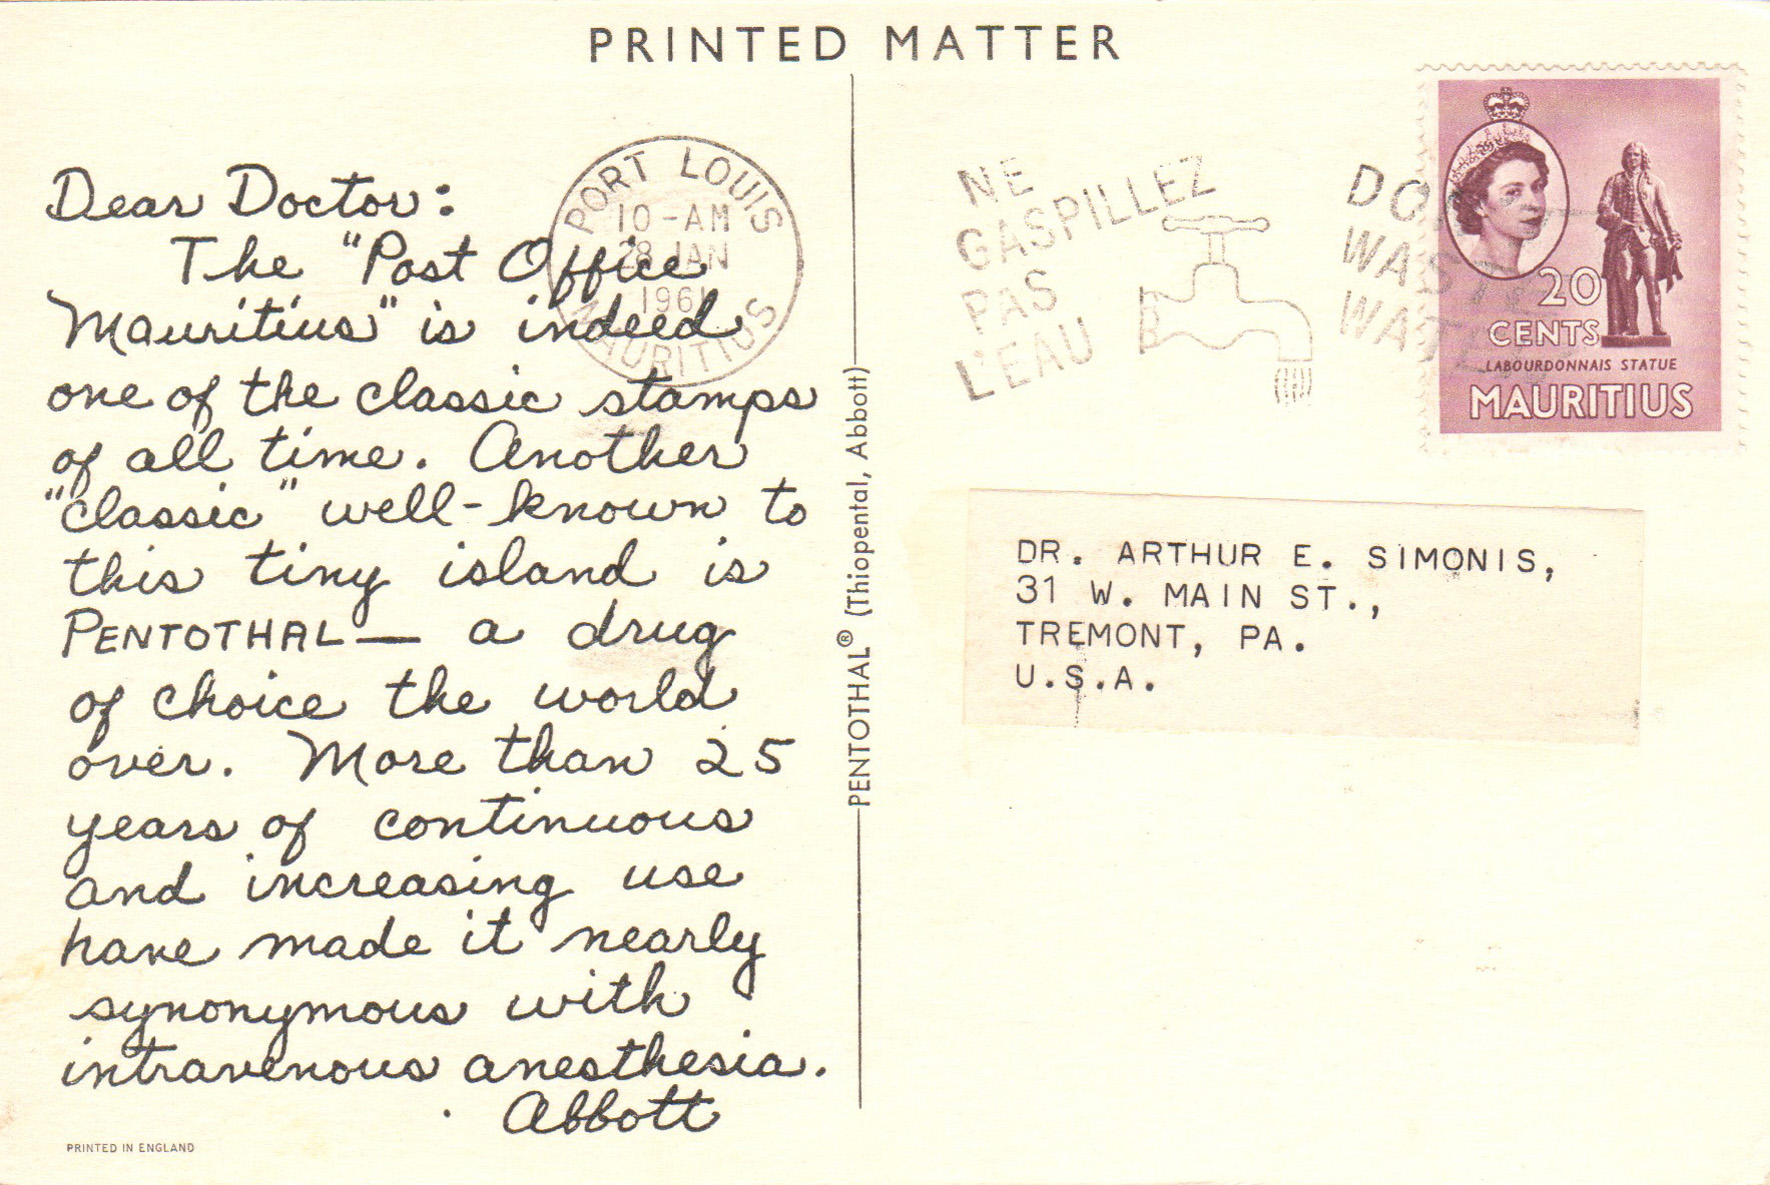 PRINTED MATTER
Dear Doctor:
The "Post Office
Mauritius" is indeed
one of the classic stamps
of all time. Another
"classic" well-known to
this tiny island is
PENTOTHAL — a drug
of choice the world
over. More than 25
years of continuous
and increasing use
have made it nearly
synonymous with
intravenous anesthesia.
Abbott
PRINTED IN ENGLAND
PORT LOUIS
10-AM
28 JAN
1961
MAURITIUS
PENTOTHAL® (Thiopental, Abbott)
NE
GASPILLEZ
PAS
L'EAU
DON'T
WASTE
WATER
20
CENTS
LABOURDONNAIS STATUE
MAURITIUS
DR. ARTHUR E. SIMONIS,
31 W. MAIN ST.,
TREMONT, PA.
U.S.A.